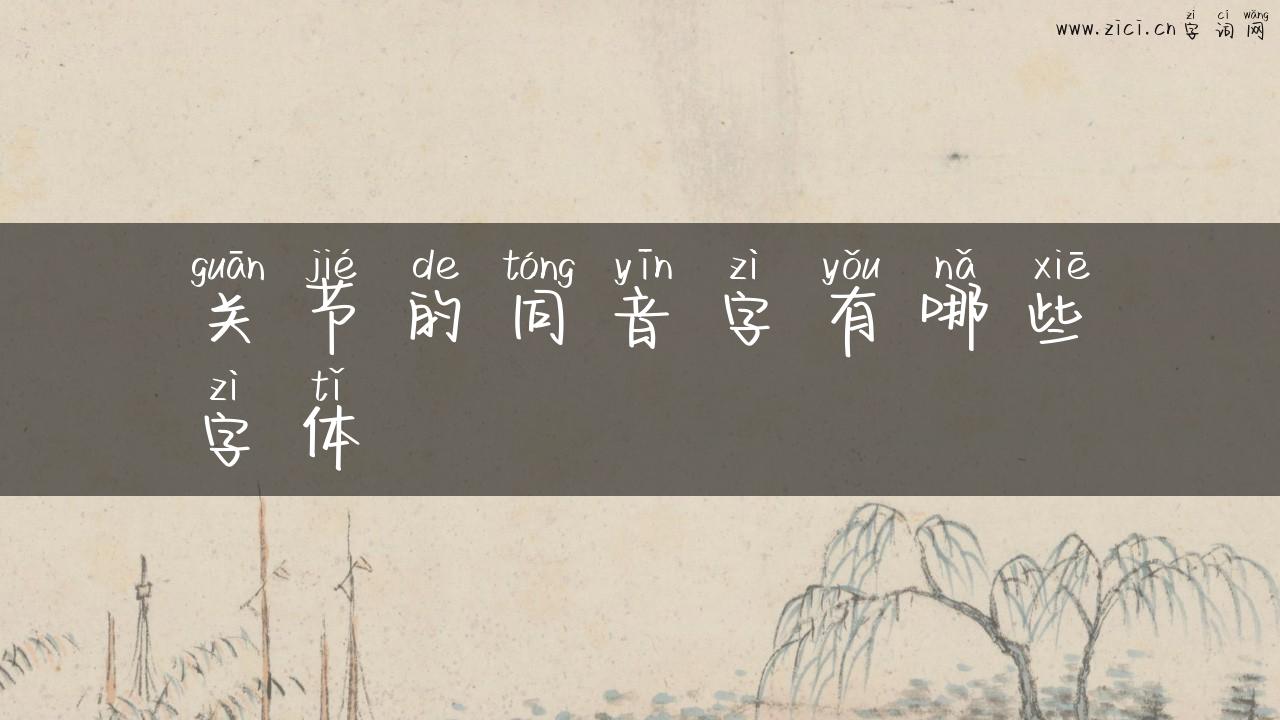 zì cí wǎng
www.zici.cn 字 词 网
guān jié de tóng yīn zì yǒu nǎ xiē
关 节 的 同 音 字 有 哪 些
zì tǐ
字 体